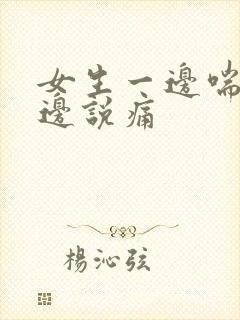 女生一邊喘
邊說痛
楊沁弦